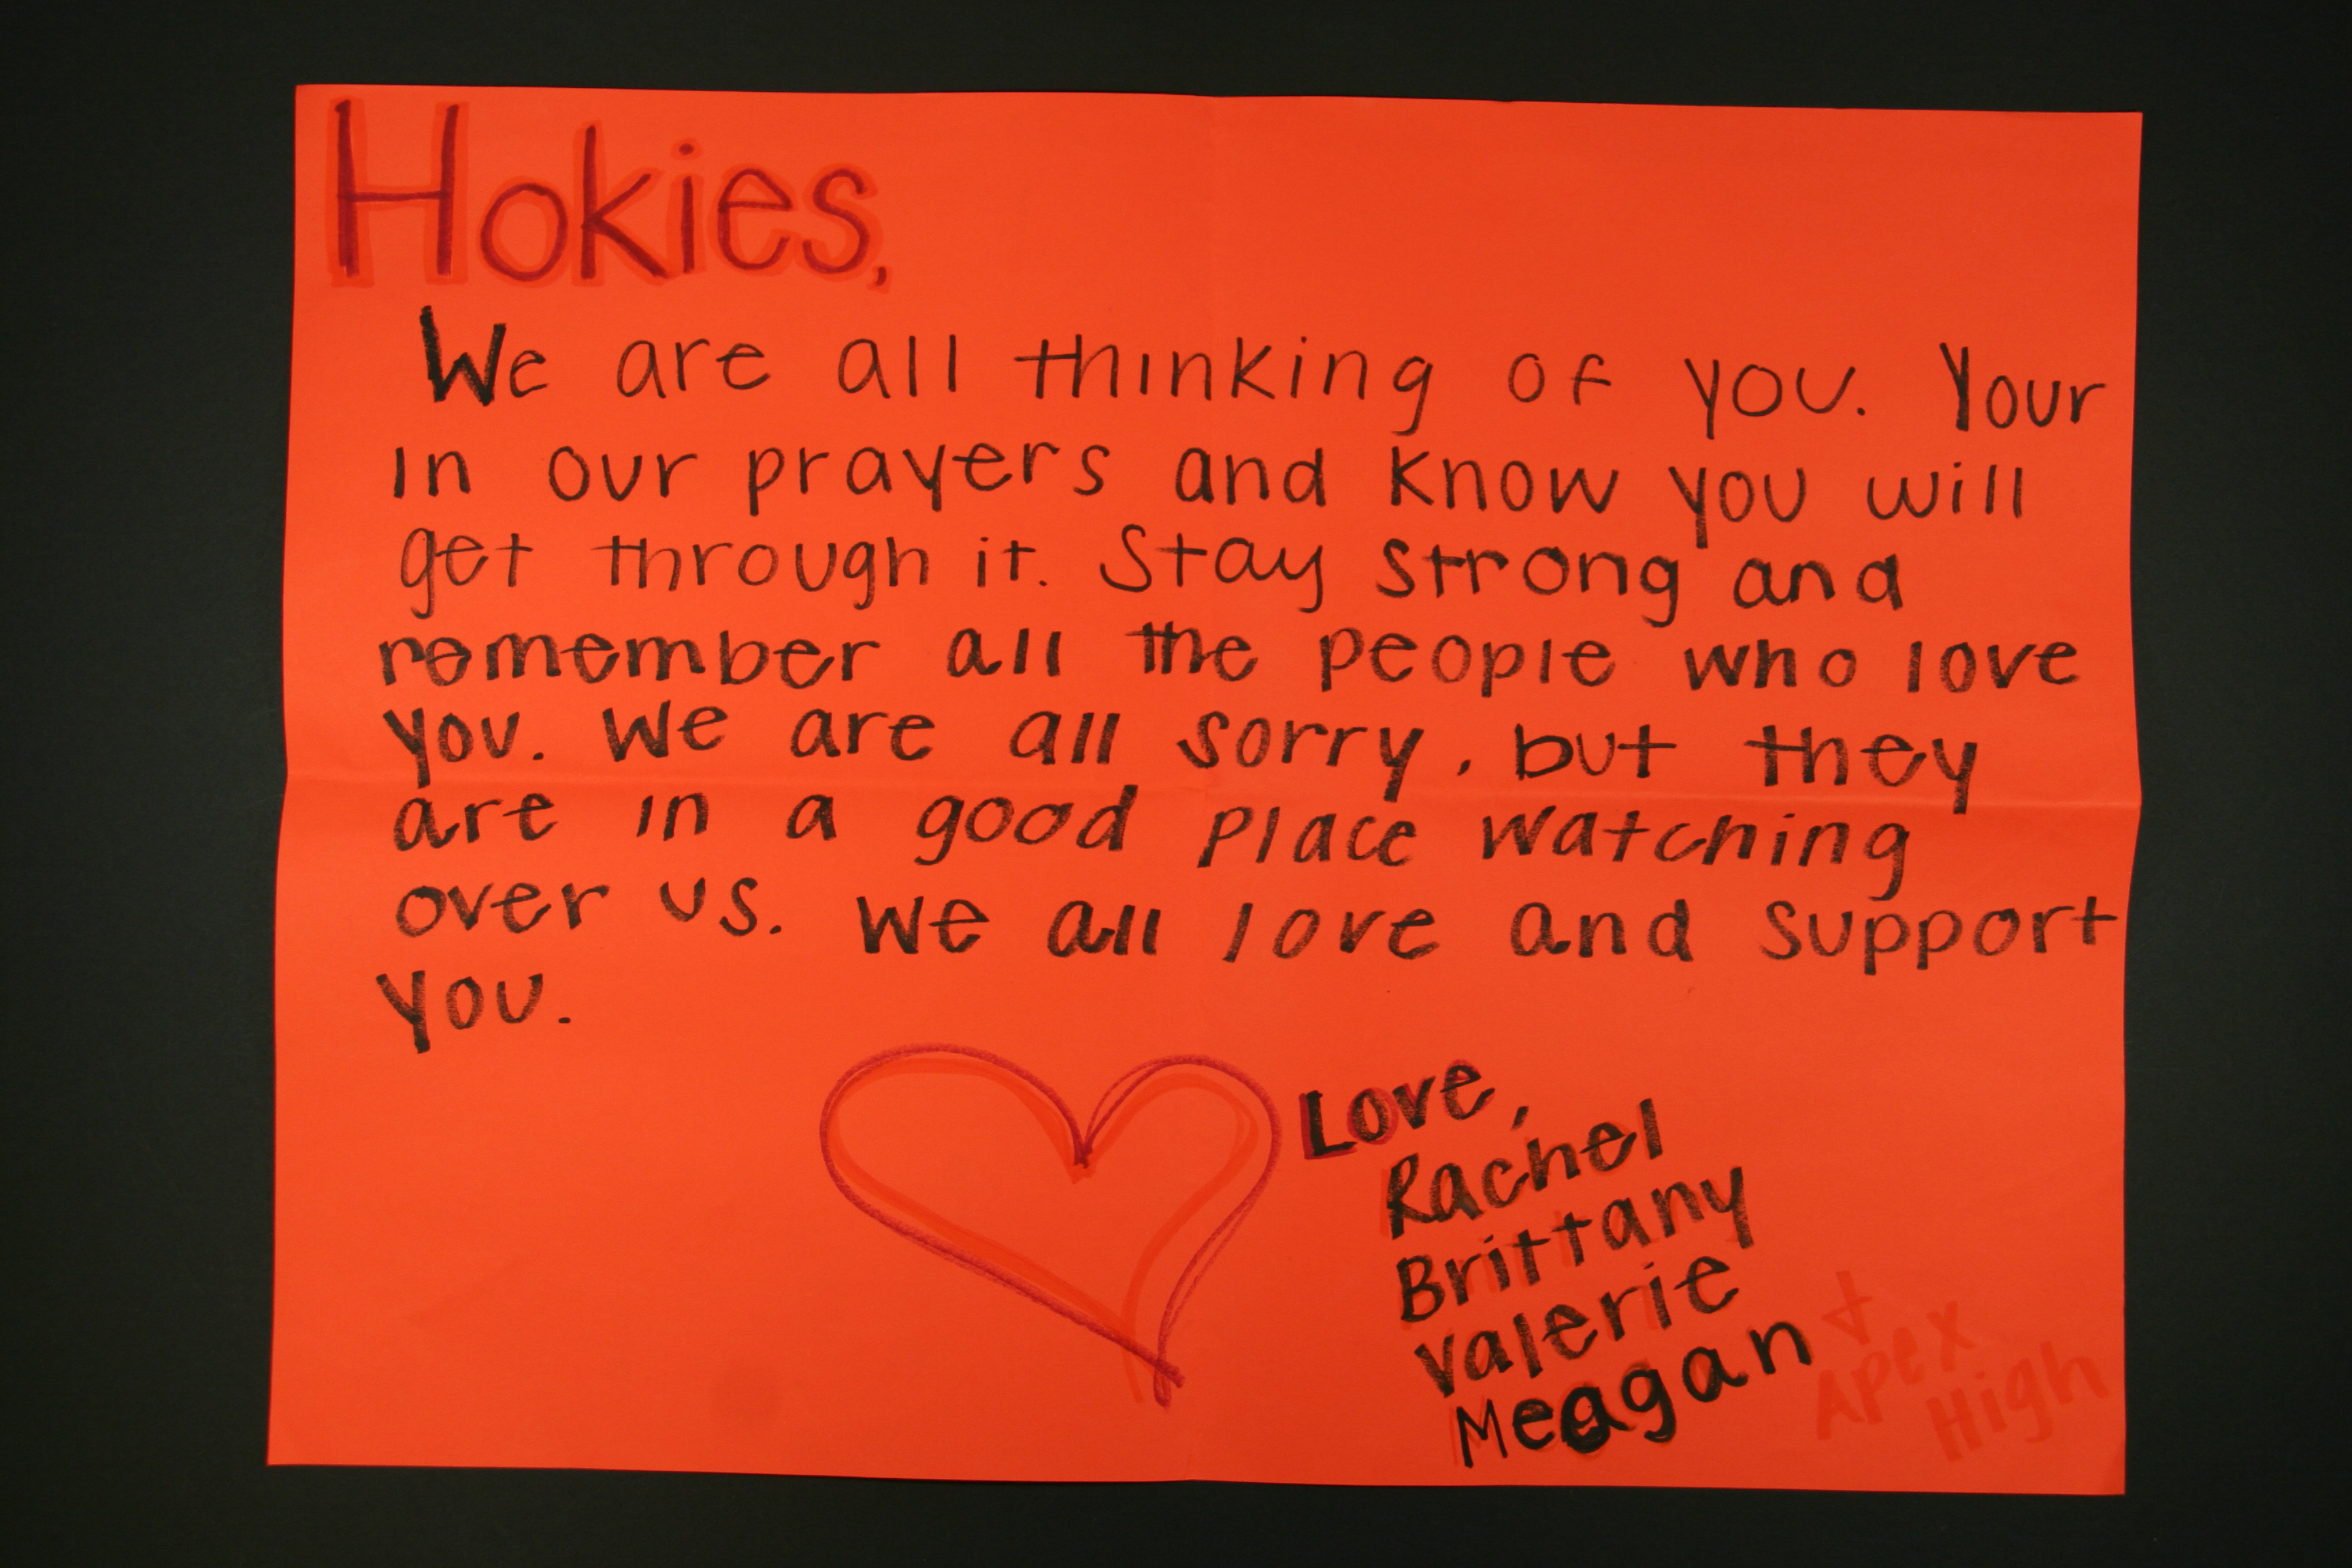 Hokies,
We are all thinking of you. Your
in our prayers and know you will
get through it. Stay strong and
remember all the people who love
you. We are all sorry, but they
are in a good place watching
over us. We all love and support
you.
Love,
Rachel
Brittany
Valerie
Meagan
+
Apex
High